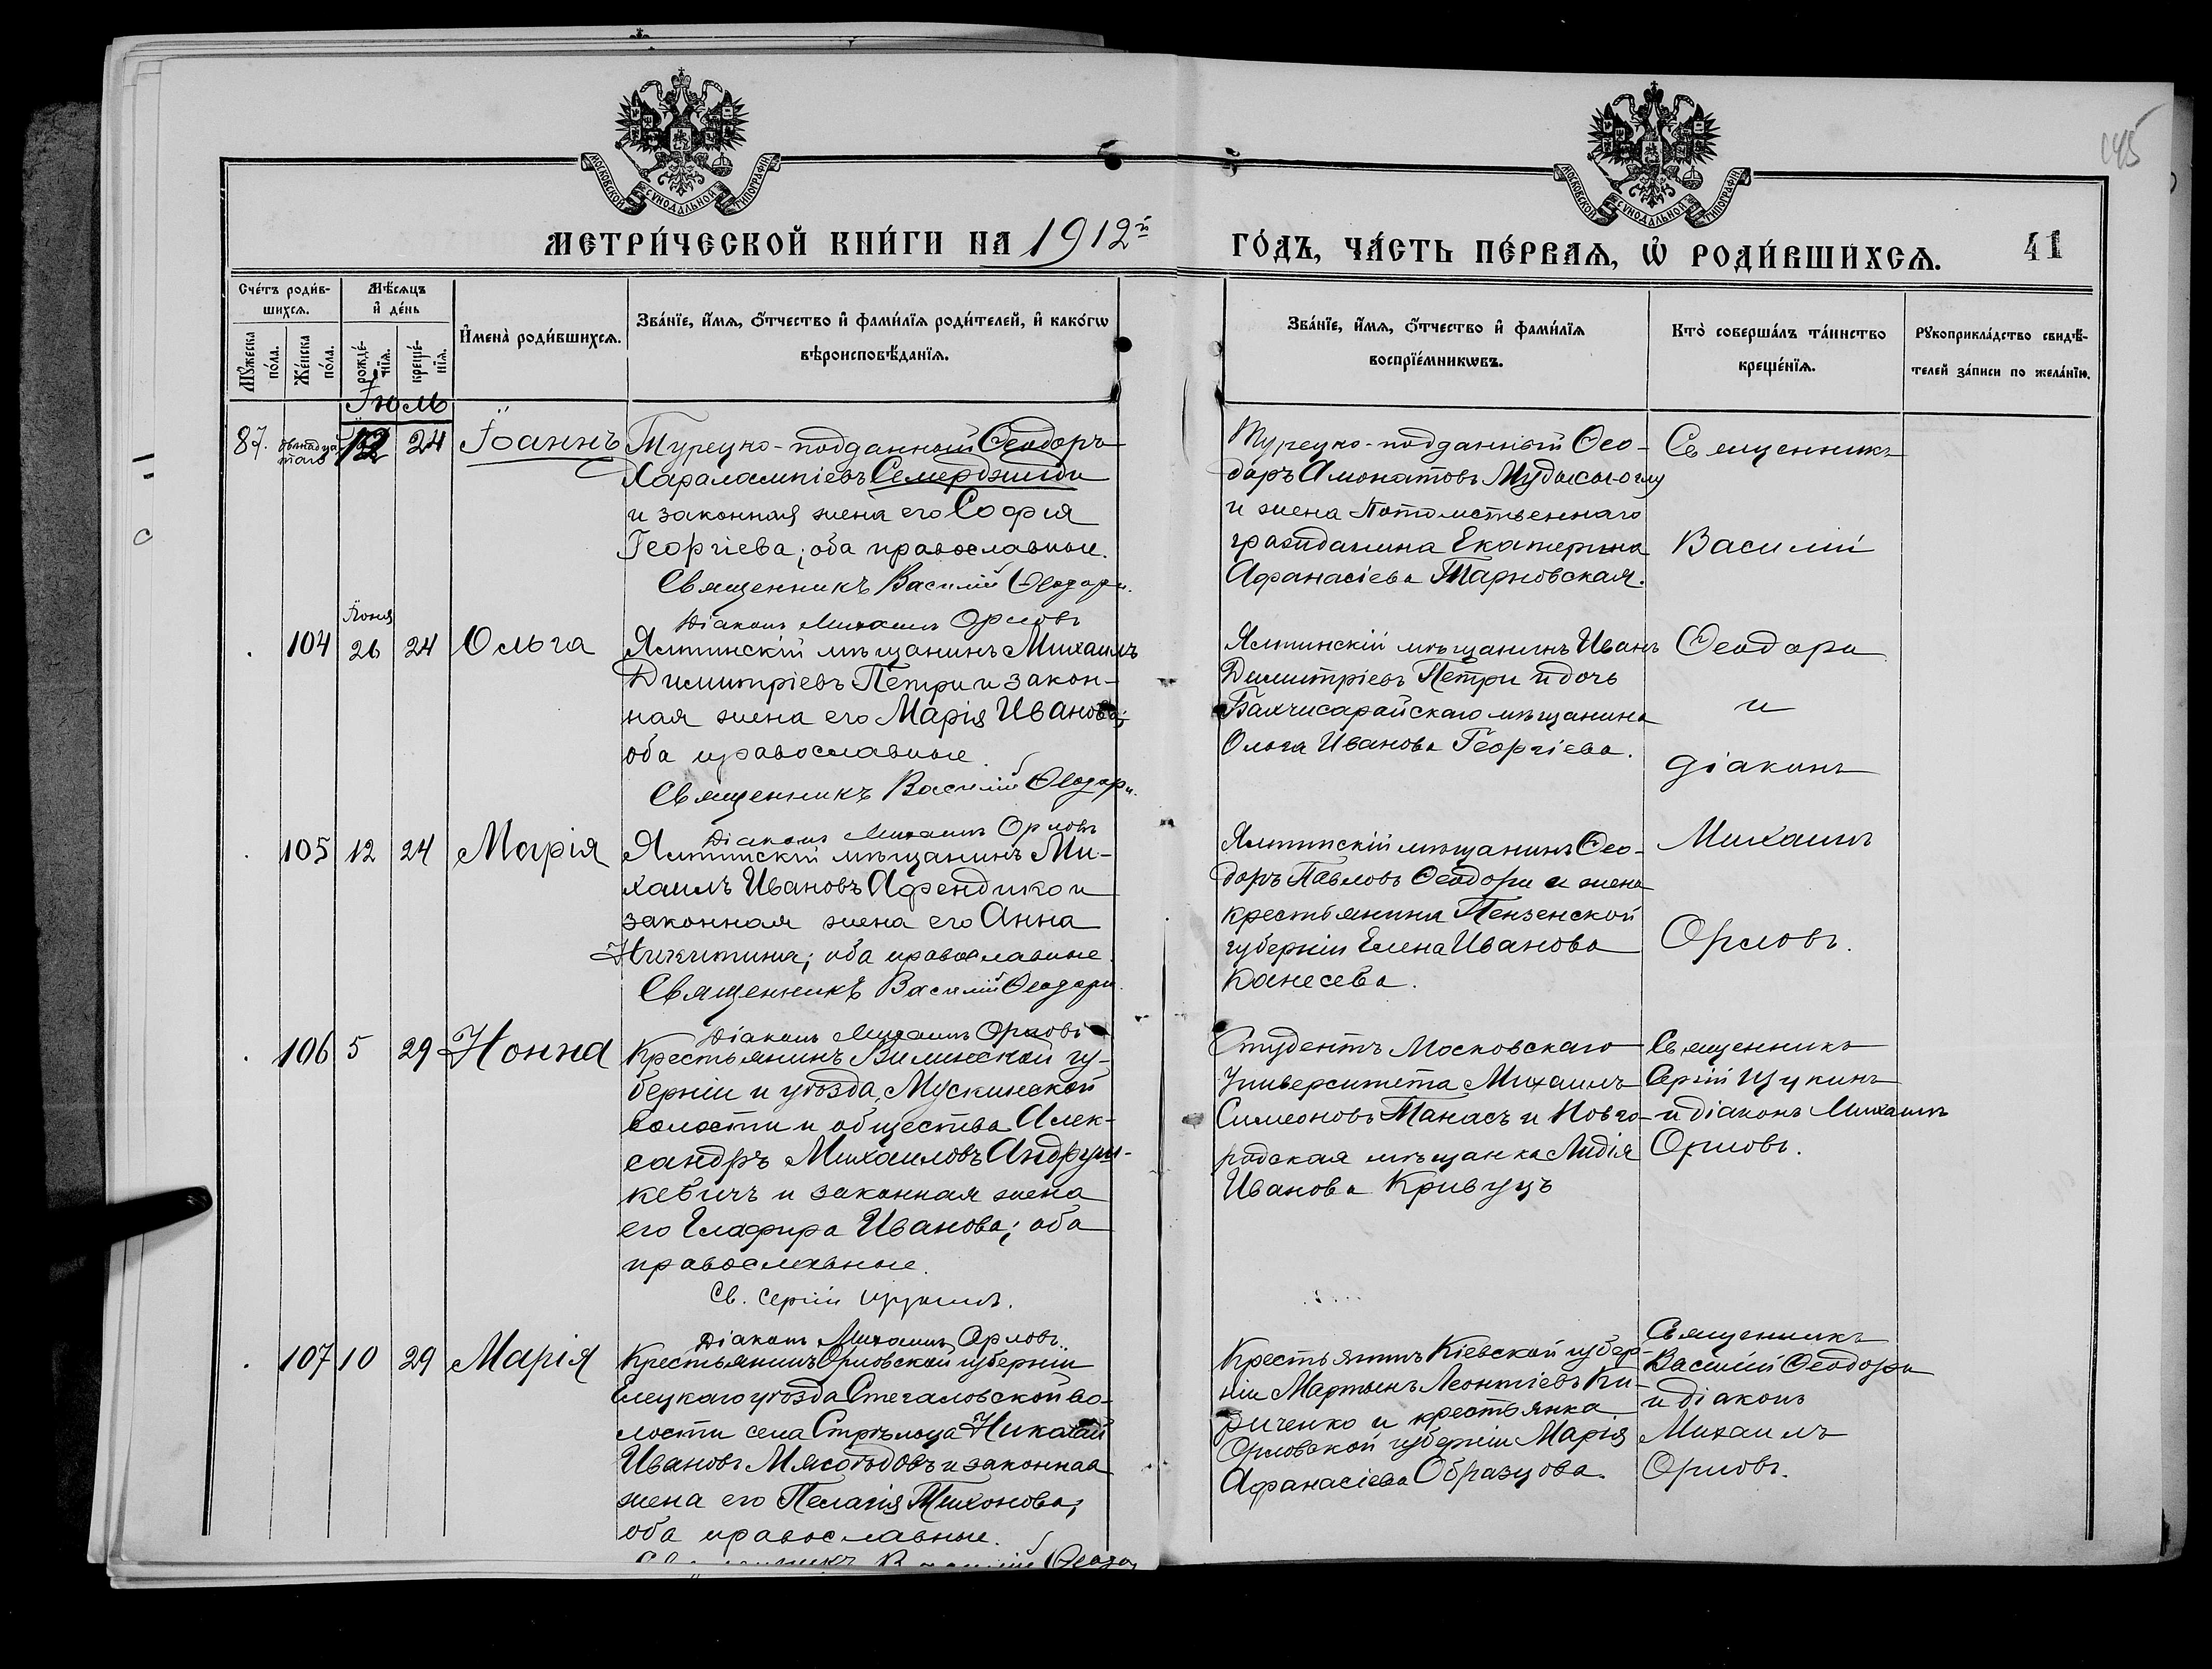 145
МОСКОВСКОЙ СѴНОДАЛЬНОЙ ТИПОГРАФІИ
МОСКОВСКОЙ СѴНОДАЛЬНОЙ ТИПОГРАФІИ
МЕТРИ́ЧЕСКОЙ КНИ́ГИ НА 1912й
ГО́ДЪ, ЧА́СТЬ ПЕ́РВАѦ, Ѡ҆ РОДИ́ВШИХСѦ. 41
Сче́тъ роди́в-
шихсѧ.
Мꙋ́жеска по́ла.
Же́нска по́ла.
Мѣ́сѧцъ
и҆ де́нь
рожде́-
нїѧ.
креще́-
нїѧ.
И҆мена̀ роди́вшихсѧ.
Зва́нїе, и҆́мѧ, ѻ҆́тчество и҆ фами́лїѧ роди́телей, и҆ како́гѡ
вѣроисповѣ́данїѧ.
Зва́нїе, и҆́мѧ, ѻ҆́тчество и҆ фами́лїѧ
воспрїе́мникѡвъ.
Кто̀ соверша́лъ та́инство
креще́нїѧ.
Рꙋкоприкла́дство свидѣ́-
телей за́писи по жела́нїю.
Іюль
87. двѣнадца-
таго 12 24 Іоаннъ
Турецко-подданный Ѳеодоръ
Харалампіевъ Семерджиди
и законная жена его Софія
Георгіева; оба православные.
Священникъ Василій Ѳеодори.
Діаконъ Михаилъ Орловъ
Турецко-подданный Ѳео-
доръ Амонатовъ
и жена Потомственнаго
гражданина Екатерина
Афанасіева Тарновская.
Священникъ
Василій
Ѳеодори
и
діаконъ
Михаилъ
Орловъ.
104 Іюня 26 24 Ольга
Ялтинскій мѣщанинъ Михаилъ
Димитріевъ Петри и закон-
ная жена его Марія Иванова;
оба православные.
Священникъ Василій Ѳеодори.
Діаконъ Михаилъ Орловъ
Ялтинскій мѣщанинъ Иванъ
Димитріевъ Петри и дочь
Бахчисарайскаго мѣщанина
Ольга Иванова Георгіева.
105 12 24 Марія
Ялтинскій мѣщанинъ Ми-
хаилъ Ивановъ Афендико и
законная жена его Анна
Никитина; оба православные.
Священникъ Василій Ѳеодори.
Діаконъ Михаилъ Орловъ
Ялтинскій мѣщанинъ Ѳео-
доръ Павловъ Ѳеодори и жена
крестьянина Пензенской
губерніи Елена Иванова
Канесева.
106 5 29 Нонна
Крестьянинъ Виленской гу-
берніи и уѣзда, Мускинской
волости и общества Алек-
сандръ Михаиловъ Андруш-
кевичъ и законная жена
его Глафира Иванова; оба
православные.
Св. Сергій Щукинъ.
Діаконъ Михаилъ Орловъ.
Студентъ Московскаго
Университета Михаилъ
Симеоновъ Танасъ и Новго-
родская мѣщанка Лидія
Иванова Кривуцъ
Священникъ
Сергій Щукинъ
и діаконъ Михаилъ
Орловъ.
107 10 29 Марія
Крестьянинъ Орловской губерніи
Елецкаго уѣзда Стегаловской во-
лости села Стрѣльца Николай
Ивановъ Мясоѣдовъ и законная
жена его Пелагія Тихонова;
оба православные.
Священникъ Василій Ѳеодори
Крестьянинъ Кіевской губер-
ніи Мартынъ Леонтіевъ Ки-
риченко и крестьянка
Орловской губерніи Марія
Афанасіева Образцова.
Священникъ
Василій Ѳеодори
и діаконъ
Михаилъ
Орловъ.